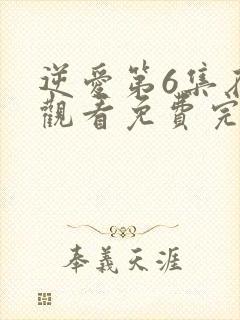 逆愛第6集
觀看免費完
奉義天涯